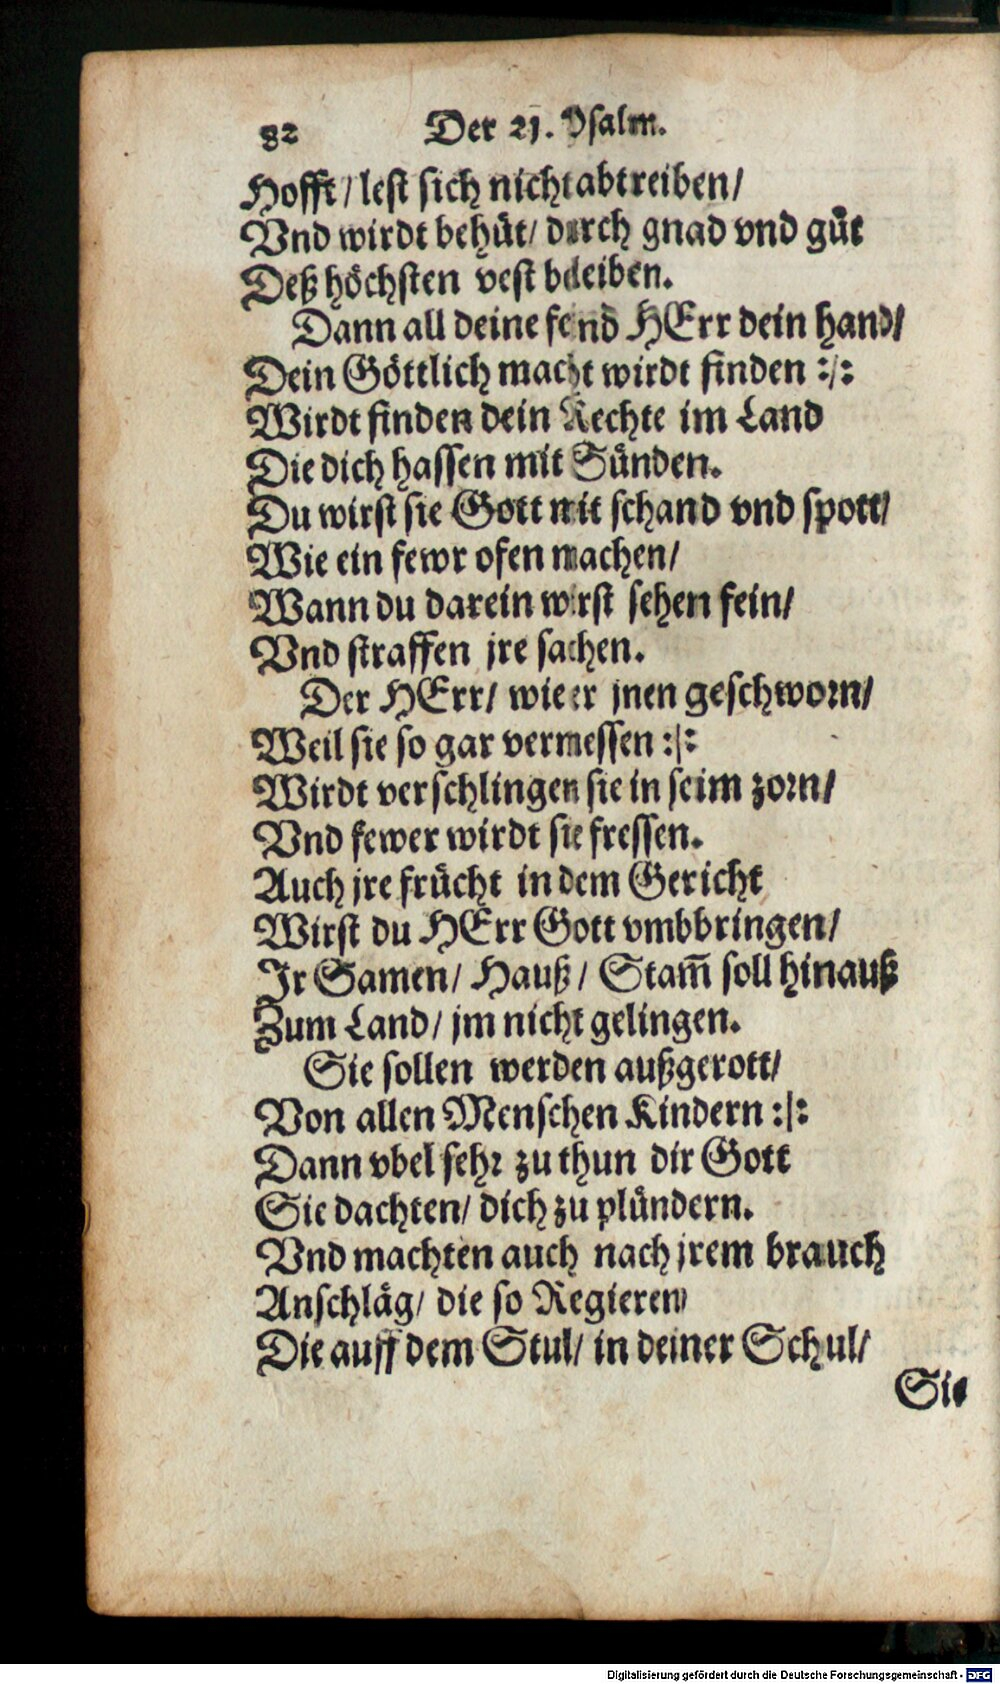 82 Der 21. Psalm.
Hofft / lest sich nicht abtreiben /
Vnd wirdt behüt / durch gnad vnd güt
Deß höchsten vest bleiben.
Dann all deine feind HErr dein hand /
Dein Göttlich macht wirdt finden :/:
Wirdt finden dein Rechte im Land
Die dich hassen mit Sünden.
Du wirst sie Gott mit schand vnd spott /
Wie ein fewr ofen machen /
Wann du darein wirst sehen fein /
Vnd straffen jre sachen.
Der HErr / wie er jnen geschworn /
Weil sie so gar vermessen :/:
Wirdt verschlingen sie in seim zorn /
Vnd fewer wirdt sie fressen.
Auch jre frücht in dem Gericht
Wirst du HErr Gott vmbbringen /
Ir Samen / Hauß / Stam̃ soll hinauß
Zum Land / jm nicht gelingen.
Sie sollen werden außgerott /
Von allen Menschen Kindern :/:
Dann vbel sehr zu thun dir Gott
Sie dachten / dich zu plündern.
Vnd machten auch nach jrem brauch
Anschläg / die so Regieren /
Die auff dem Stul / in deiner Schul /
Sie
Digitalisierung gefördert durch die Deutsche Forschungsgemeinschaft - DFG